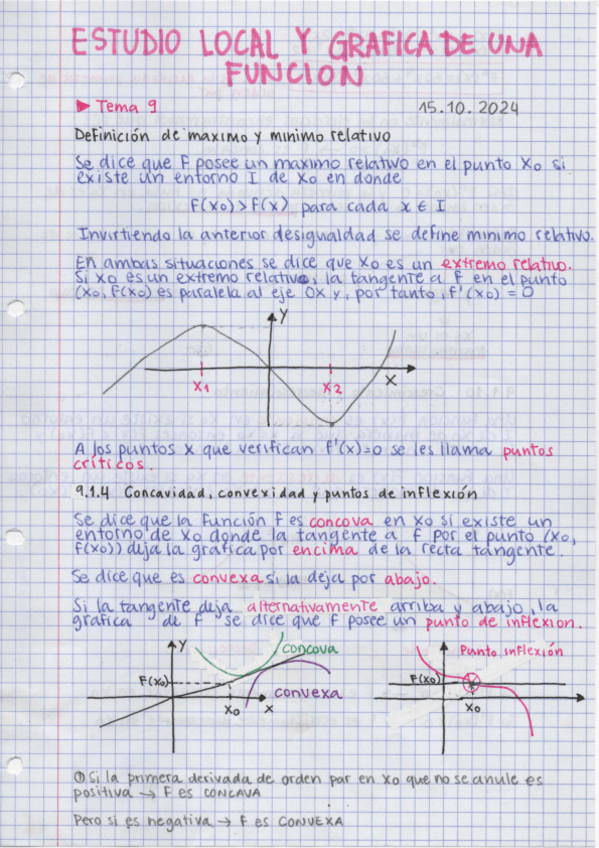 ESTUDIO LOCAL Y GRAFICA DE UNA
FUNCION
▶ Tema 9
15.10.2024
Definición de maximo y minimo relativo
Se dice que F posee un maximo relativo en el punto X₀ si
existe un entorno I de X₀ en donde
F(x₀) > F(x) para cada x ∈ I
Invirtiendo la anterior desigualdad se define minimo relativo.
En ambas situaciones se dice que X₀ es un extremo relativo.
Si X₀ es un extremo relativo, la tangente a F en el punto
(X₀, F(X₀) es paralela al eje OX y, por tanto, F'(X₀) = 0
Y
X₁
X₂
X
A los puntos x que verifican f'(x)=0 se les llama puntos
críticos.
9.1.4 Concavidad, convexidad y puntos de inflexión
Se dice que la Función F es concova en X₀ si existe un
entorno de X₀ donde la tangente a f por el punto (X₀,
F(X₀)) dija la grafica por encima de la recta tangente.
Se dice que es convexa si la deja por abajo.
Si la tangente deja alternativamente arriba y abajo, la
grafica de F se dice que F posee un punto de inflexion.
Y
concova
F(X₀)
convexa
X₀
X
Punto inflexión
F(X₀)
X₀
① Si la primera derivada de orden par en X₀ que no se anule es
positiva → F es CONCAVA
Pero si es negativa → F es CONVEXA